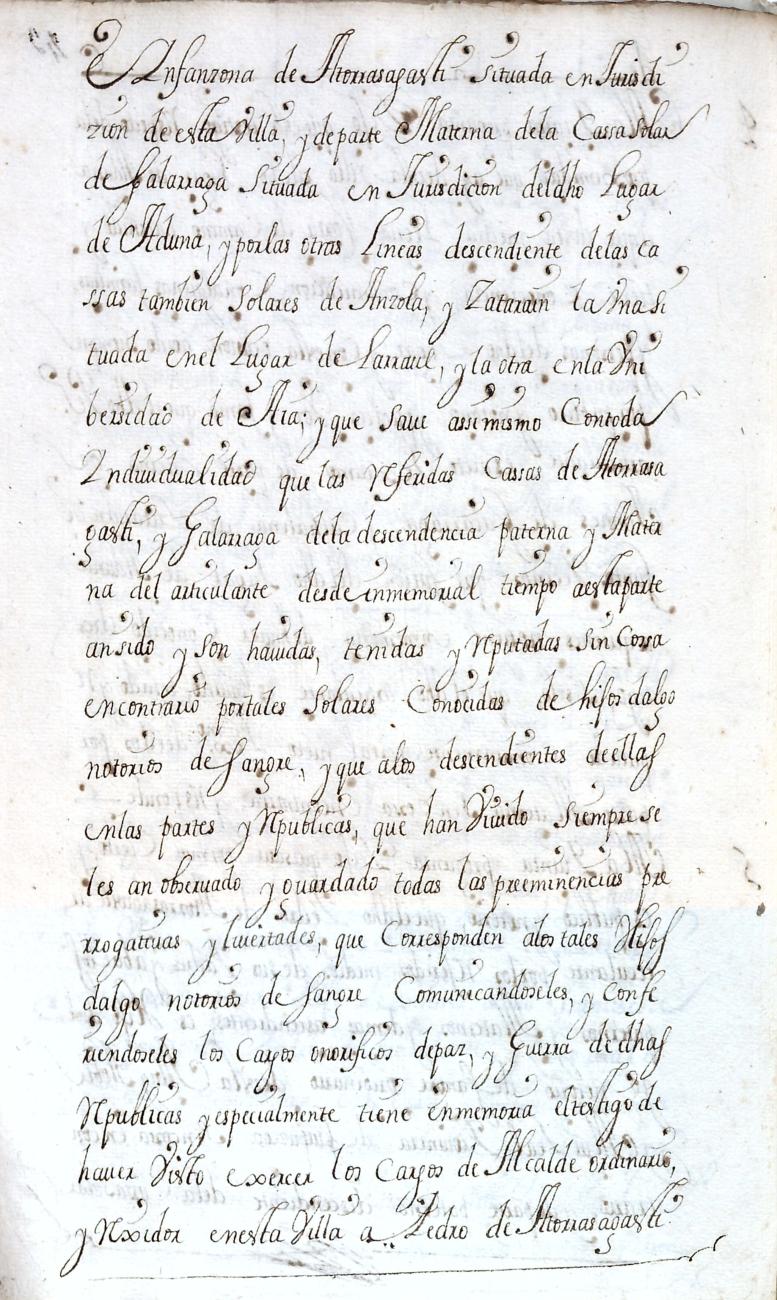 e Ynfanzona de Atorrasagasti Situada en Jurisdi
zion de esta Villa, y de parte Materna dela Cassa Solar
de Galarraga Situada en Jurisdicion del dho Lugar
de Aduna, y por las otras Lineas descendiente de las ca
ssas tambien Solares de Anzola, y Zatarain la Vna si
tuada en el Lugar de Larraul, y la otra en la Vni
bersidad de Aia; y que Save assimismo Con toda
Yndiuidualidad que las Referidas Cassas de Atorrasa
gasti, y Galarraga dela descendencia paterna y Mater
na del articulante desde inmemorial tiempo a esta parte
an sido y son hauidas, tenidas y Reputadas sin Cossa
en contrario por tales Solares Conocidas de hijos dalgo
notorios de Sangre, y que a los descendientes de ellas
en las partes y Republicas, que han Viuido Siempre se
les an observado y guardado todas las preeminencias pre
rrogativas y livertades, que Corresponden a los tales Hijos
dalgo notorios de Sangre Comunicandoseles, y Confi
riendoseles los Cargos onorificos de paz, y Guerra de dhas
Republicas y especialmente tiene en memoria el testigo de
haver Visto exercer los Cargos de Alcalde ordinario,
y Rexidor en esta Villa a Pedro de Atorrasagasti